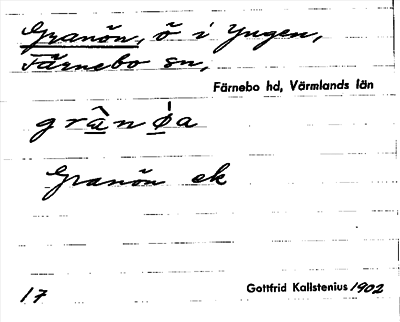 Granön, ö i Yngen,
Färnebo sn,
Färnebo hd, Värmlands län
grânøa
Granön ek
17
Gottfrid Kallstenius 1902